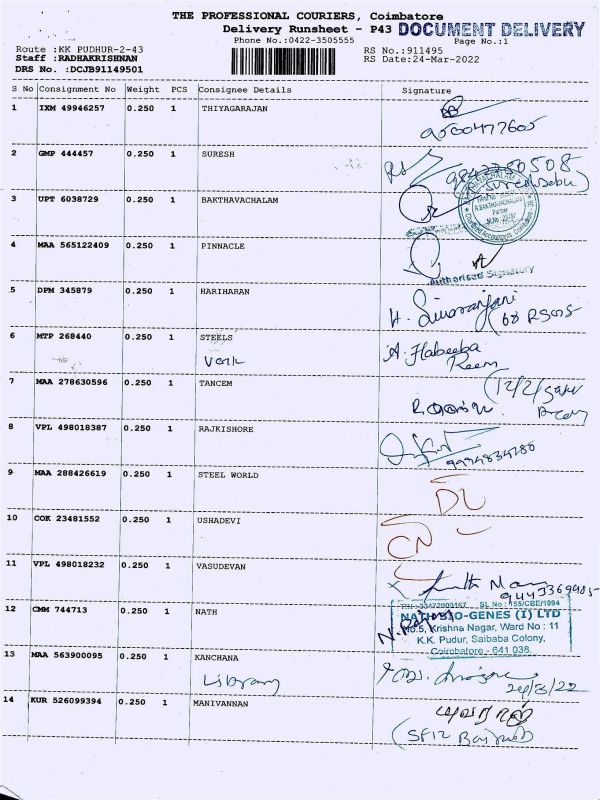 THE PROFESSIONAL COURIERS, Coimbatore
Delivery Runsheet - P43 DOCUMENT DELIVERY
Phone No.:0422-3505555
Page No.:1
Route :KK PUDHUR-2-43
RS No.:911495
Staff :RADHAKRISHNAN
RS Date:24-Mar-2022
DRS No. :DCJB91149501
S No Consignment No Weight PCS Consignee Details Signature
1 IXM 49946257 0.250 1 THIYAGARAJAN
9500477605
2 GMP 444457 0.250 1 SURESH
9843380508
3 UPT 6038729 0.250 1 BAKTHAVACHALAM
4 MAA 565122409 0.250 1 PINNACLE
Authorised Signatory
5 DPM 345879 0.250 1 HARIHARAN
H. Sivaranjani
6 MTP 268440 0.250 1 STEELS
A. Habeeba
7 MAA 278630596 0.250 1 TANCEM
8 VPL 498018387 0.250 1 RAJKISHORE
9 MAA 288426619 0.250 1 STEEL WORLD
DL
10 COK 23481552 0.250 1 USHADEVI
CN
11 VPL 498018232 0.250 1 VASUDEVAN
12 CMM 744713 0.250 1 NATH
NATH BIO-GENES (I) LTD
No.5, Krishna Nagar, Ward No : 11
K.K. Pudur, Saibaba Colony,
Coimbatore - 641 038.
13 MAA 563900095 0.250 1 KANCHANA
Library
24/3/22
14 KUR 526099394 0.250 1 MANIVANNAN